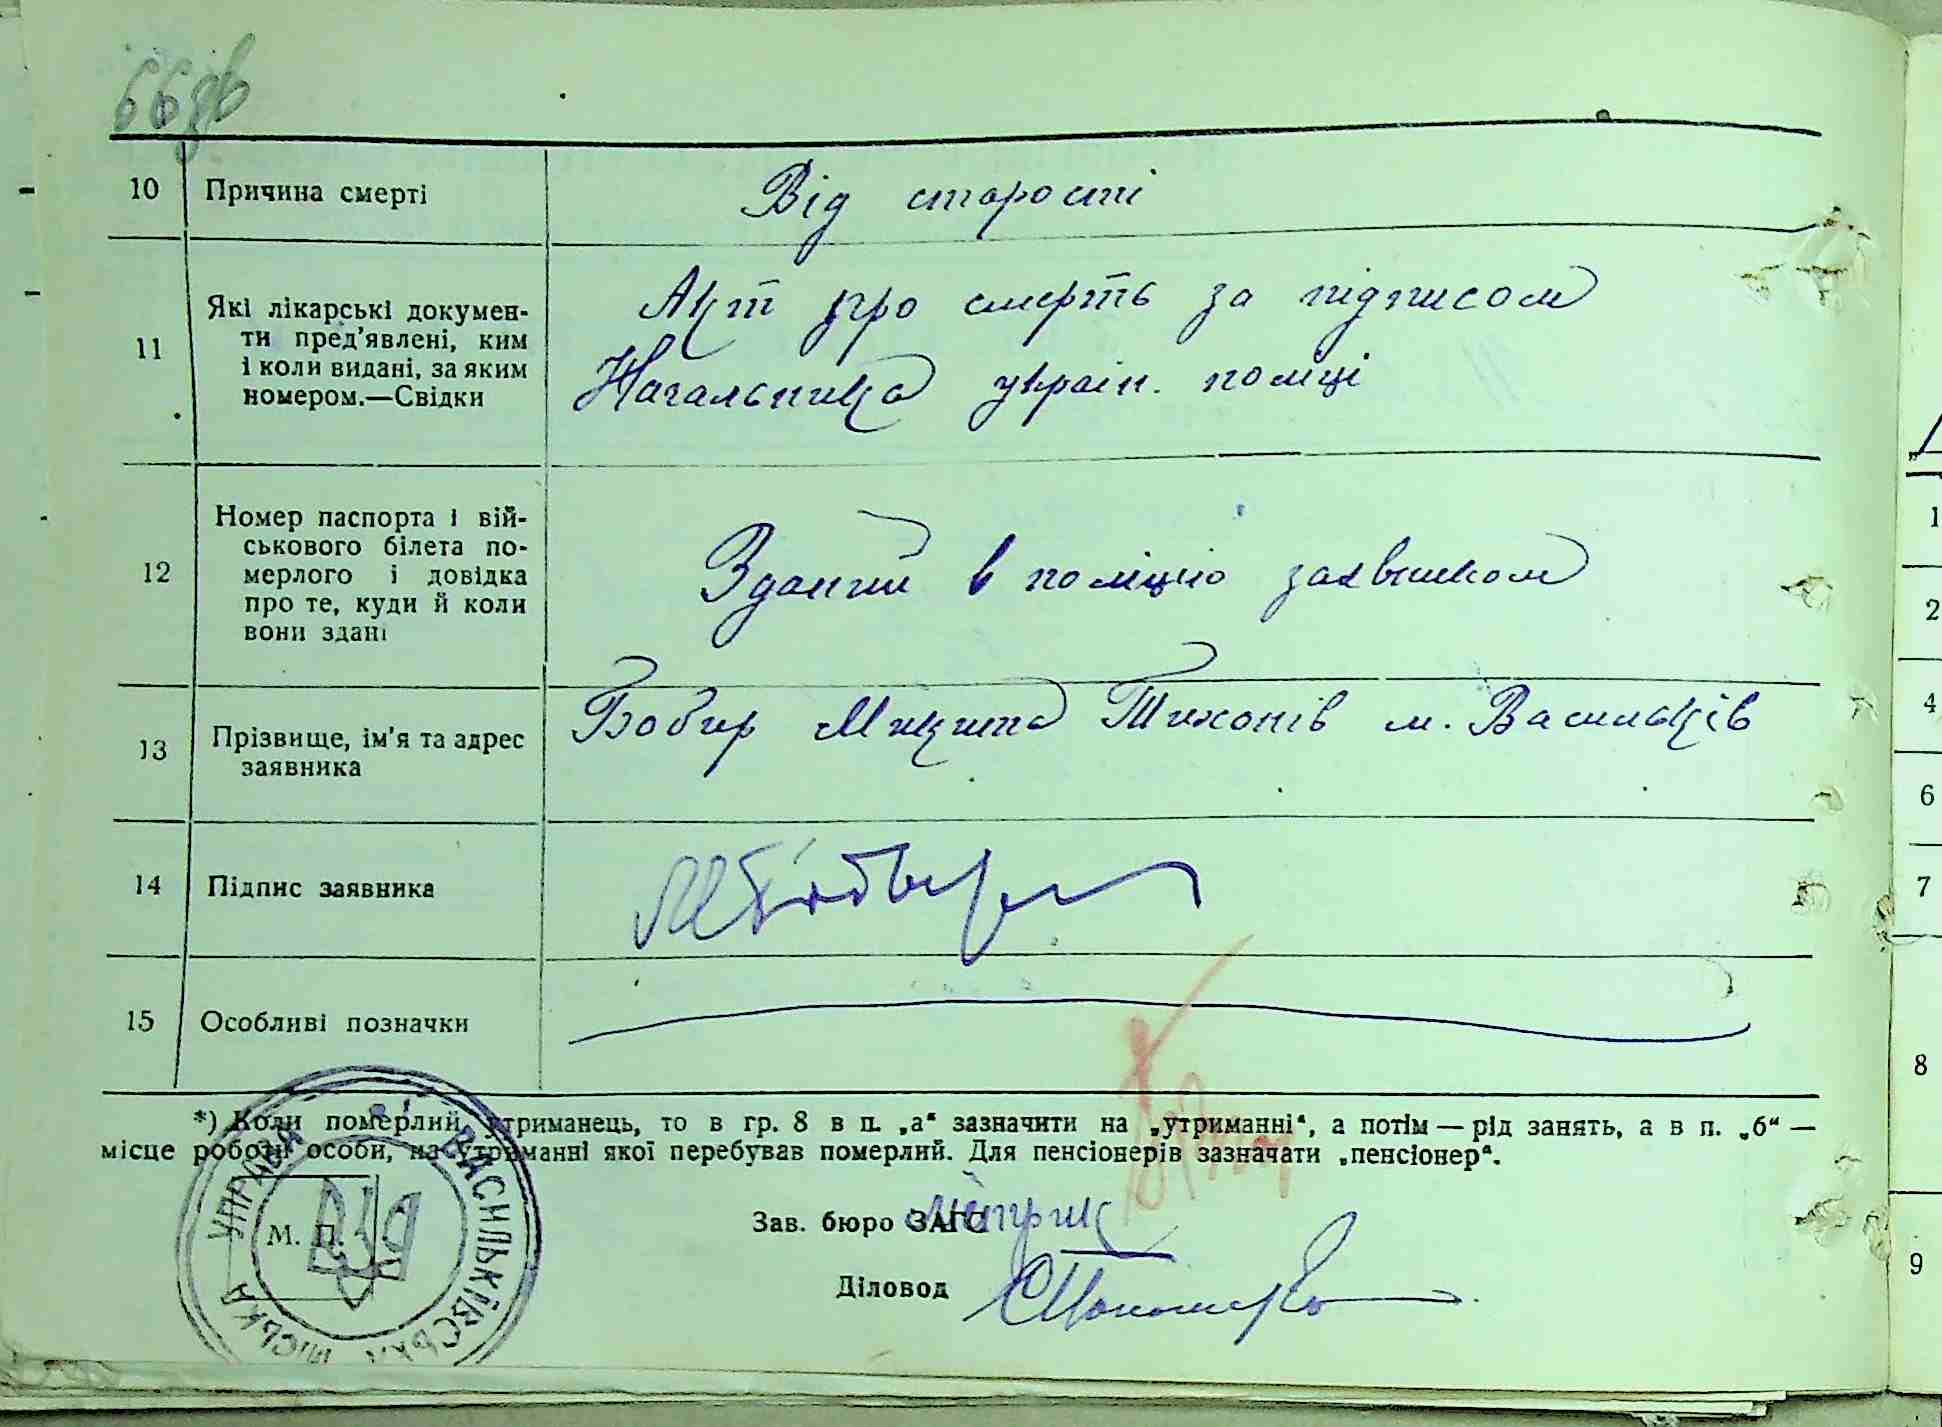 66зв
10 Причина смерті Від старости
11 Які лікарські докумен-
ти пред'явлені, ким
і коли видані, за яким
номером.—Свідки
Акт про смерть за підписом
Начальника україн. поліці
12 Номер паспорта і вій-
ськового білета по-
мерлого і довідка
про те, куди й коли
вони здані
Зданий в поліцію заявником
13 Прізвище, ім'я та адрес
заявника
Бобир Микита Тихонів м. Васильків
14 Підпис заявника МБобыр
15 Особливі позначки
*) Коли померлий утриманець, то в гр. 8 в п. „а“ зазначити на „утриманні“, а потім — рід занять, а в п. „б“ —
місце роботи особи, на утриманні якої перебував померлий. Для пенсіонерів зазначати „пенсіонер“.
М. П.
ВАСИЛЬКІВСЬКА МІСЬКА УПРАВА
Зав. бюро ЗАГС метрик
Діловод
1
2
4
6
7
8
9